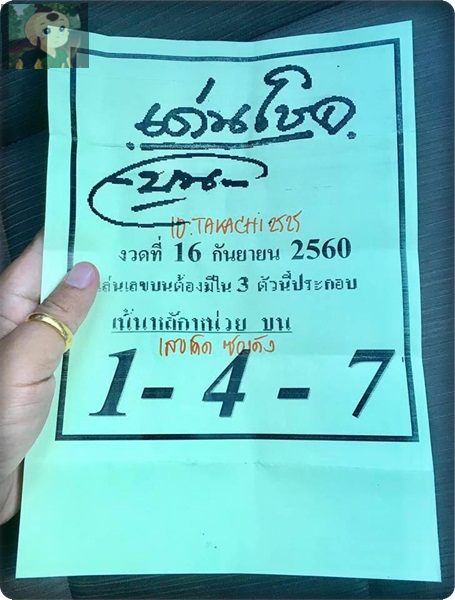 เด่นโชค
-บน-
ID.TAKACHI2525
งวดที่ 16 กันยายน 2560
เล่นเลขบนต้องมีใน 3 ตัวนี้ประกอบ
เน้นหลักหน่วย บน
เลขเด็ด ซองดัง
1 - 4 - 7